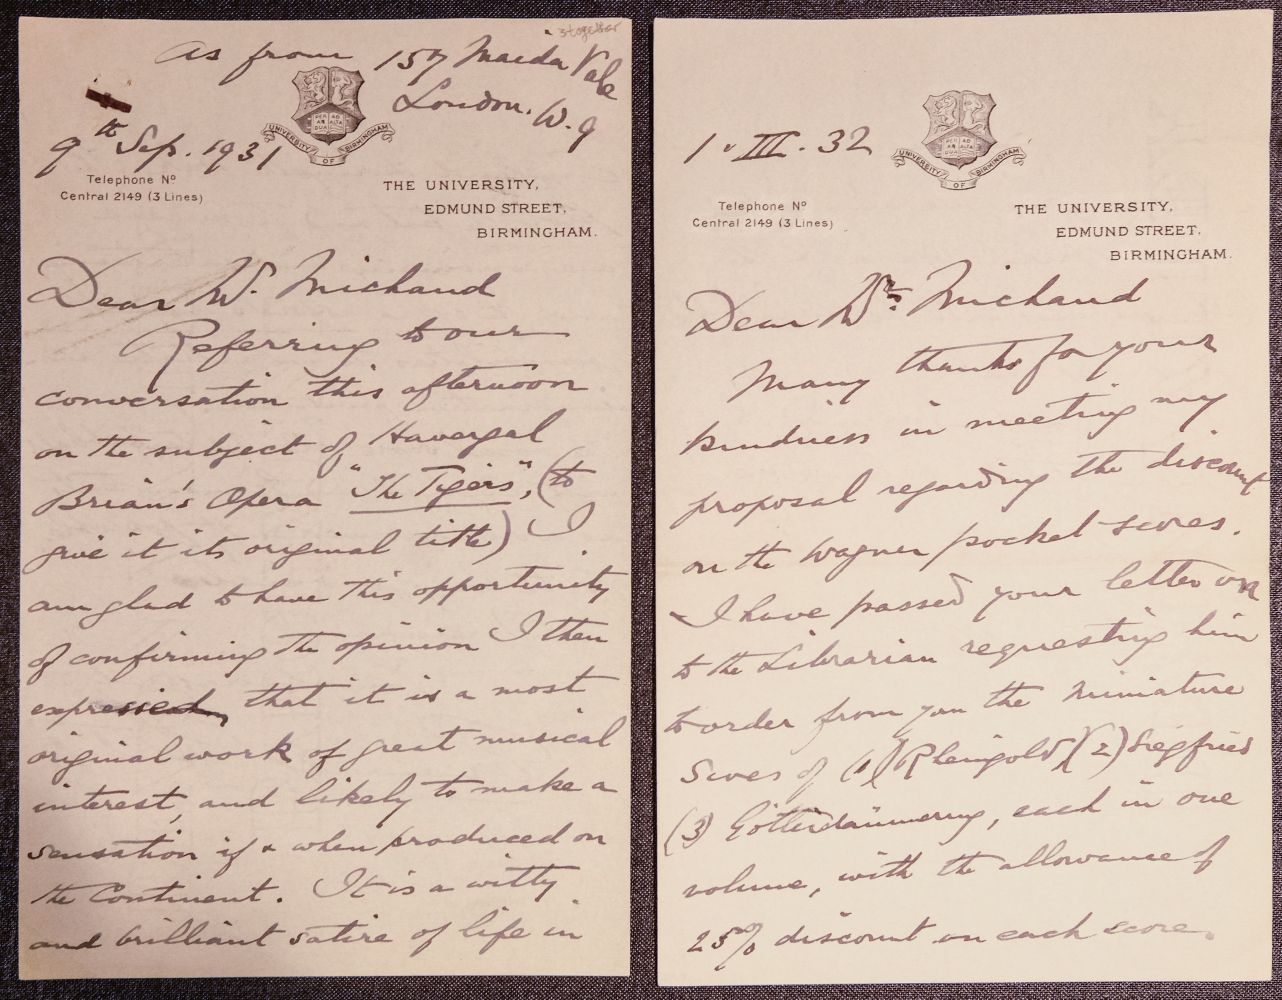 3 together
as from 157 Maida Vale
London. W. 9
9th Sep. 1931
PER AD
AR ALTA
DUA
UNIVERSITY OF BIRMINGHAM
Telephone No
Central 2149 (3 Lines)
THE UNIVERSITY,
EDMUND STREET,
BIRMINGHAM.
Dear Mr. Michaud
Referring to our
conversation this afternoon
on the subject of Havergal
Brian's Opera "The Tigers", (to
give it its original title) I
am glad to have this opportunity
of confirming the opinion I then
expressed, that it is a most
original work of great musical
interest, and likely to make a
sensation if & when produced on
the Continent. It is a witty
and brilliant satire of life in
1. III. 32
PER AD
AR ALTA
DUA
UNIVERSITY OF BIRMINGHAM
Telephone No
Central 2149 (3 Lines)
THE UNIVERSITY,
EDMUND STREET,
BIRMINGHAM.
Dear Mr. Michaud
Many thanks for your
kindness in meeting my
proposal regarding the discount
on the Wagner pocket-scores.
I have passed your letter on
to the Librarian requesting him
to order from you the miniature
Scores of (1) Rheingold, (2) Siegfried
(3) Götterdämmerung, each in one
volume, with the allowance of
25% discount on each score.